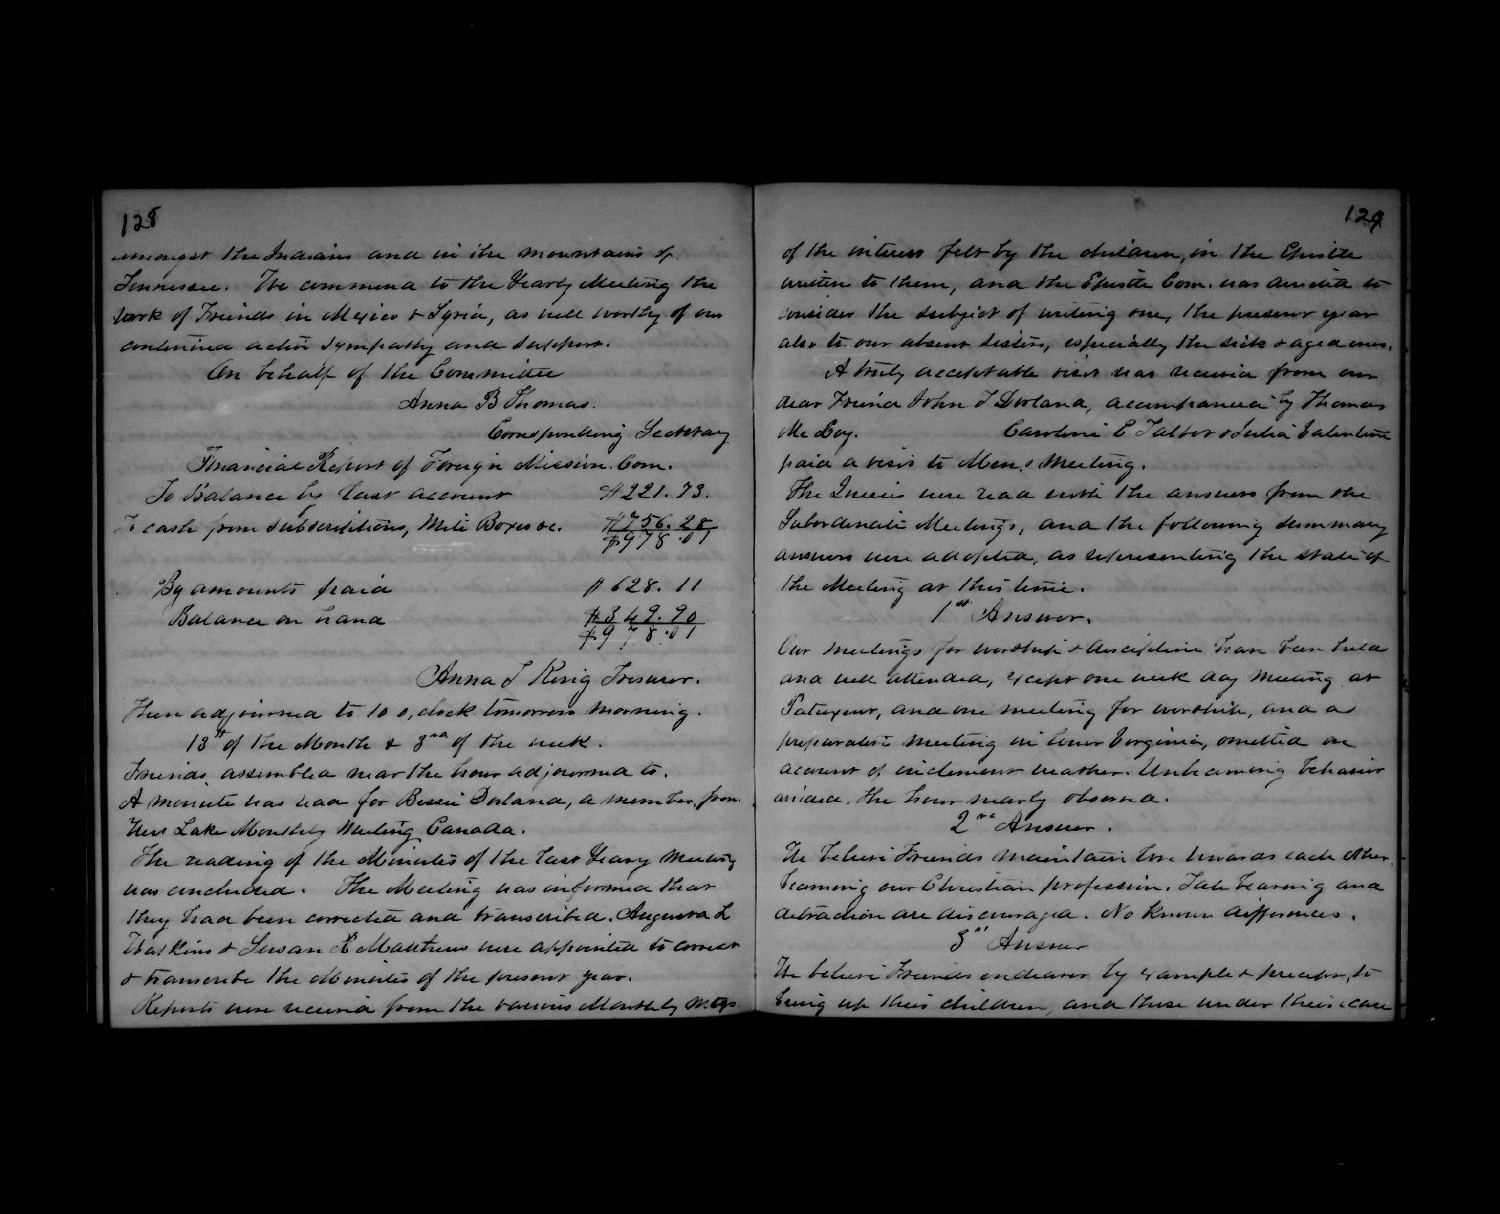 128
amongst the Indians and in the mountains of
Tennessee. We commend to the Yearly Meeting the
work of Friends in Mexico & Syria, as well worthy of our
continued active sympathy and support.
On behalf of the Committee
Anna B Thomas.
Corresponding Secretary
Financial Report of Foreign Mission Com.
To Balance by last account $221.73.
To cash from subscriptions, Mite Boxes &c. $756.28
$978.01
By amounts paid $628.11
Balance on hand $349.90
$978.01
Anna T King Tresurer.
Then adjourned to 10 o,clock tomorrow morning.
13th of the Month & 3rd of the week.
Friends assembled near the hour adjourned to.
A minute was read for Bessie Dorland, a member from
West Lake Monthly Meeting Canada.
The reading of the Minutes of the last Yearly Meeting
was concluded. The Meeting was informed that
they had been corrected and transcribed. Augusta L
Watkins & Susan R Matthews were appointed to correct
& transcribe the Minutes of the present year.
Reports were received from the various Monthly Mtgs.
129
of the interest felt by the children, in the Epistle
written to them, and the Epistle Com. was directed to
consider the subject of writing one, the present year
also to our absent sisters, especially the sick & aged ones.
A truly acceptable visit was received from our
dear Friend John T Dorland, accompanied by Thomas
Mc Coy. Caroline E Talbot & Julia Valentine
paid a visit to Men,s Meeting.
The Queries were read with the answers from the
Subordinate Meetings, and the following summary
answers were adopted, as representing the state of
the Meeting at this time.
1st Answer.
Our meetings for worship & discipline have been held
and well attended, except one week day meeting at
Patuxent, and one meeting for worship, and a
preparative meeting in lower Virginia, omitted on
account of inclement weather. Unbecoming behavior
avoided. the hour nearly observed.
2nd Answer.
We believe Friends maintain love towards each other,
becoming our Christian profession. Tale bearing and
detraction are discouraged. No known differences.
3rd Answer
We believe Friends endeavor by example & precept, to
bring up their children, and those under their care